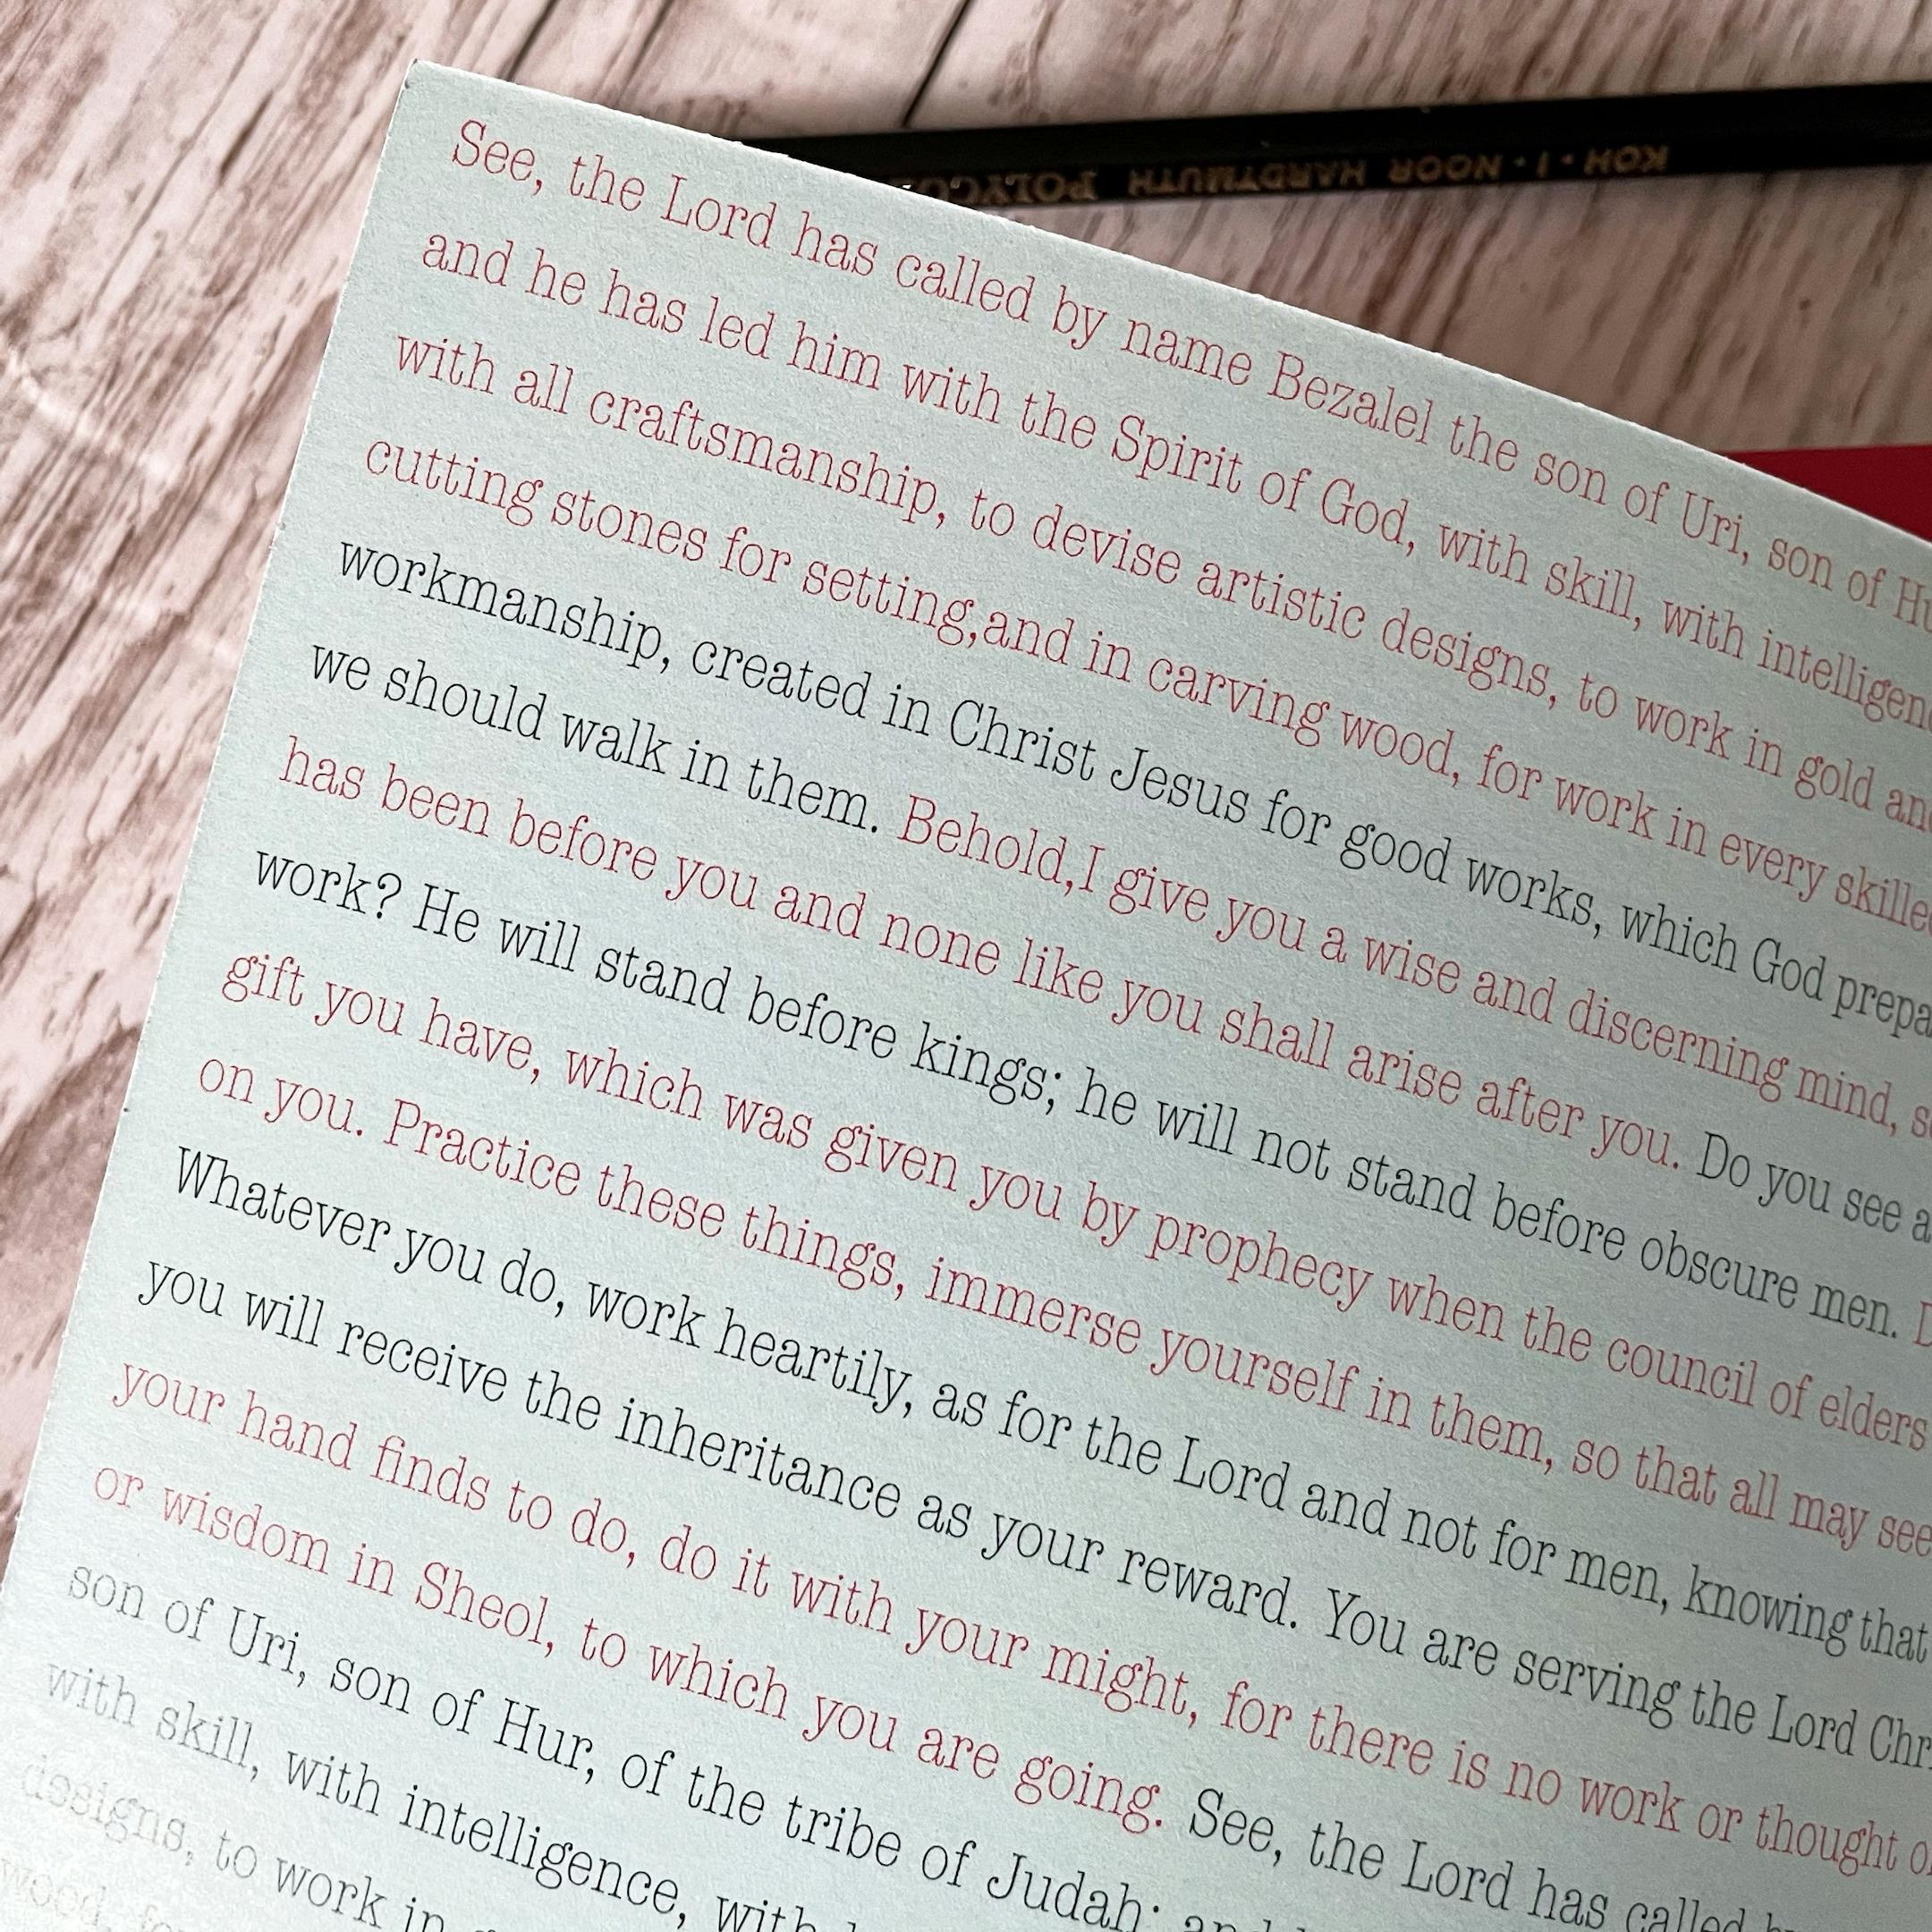 KOH-I-NOOR HARDTMUTH
See, the Lord has called by name Bezalel the son of Uri, son of
and he has led him with the Spirit of God, with skill, with
with all craftsmanship, to devise artistic designs, to work in gold
cutting stones for setting,and in carving wood, for work in every
workmanship, created in Christ Jesus for good works, which God
we should walk in them. Behold,I give you a wise and discerning mind,
has been before you and none like you shall arise after you. Do you see a
work? He will stand before kings; he will not stand before obscure men.
gift you have, which was given you by prophecy when the council of elders
on you. Practice these things, immerse yourself in them, so that all may see
Whatever you do, work heartily, as for the Lord and not for men, knowing that
you will receive the inheritance as your reward. You are serving the Lord
your hand finds to do, do it with your might, for there is no work or thought
or wisdom in Sheol, to which you are going. See, the Lord has called
son of Uri, son of Hur, of the tribe of Judah; and
with skill, with intelligence, with
designs, to work in
wood, for